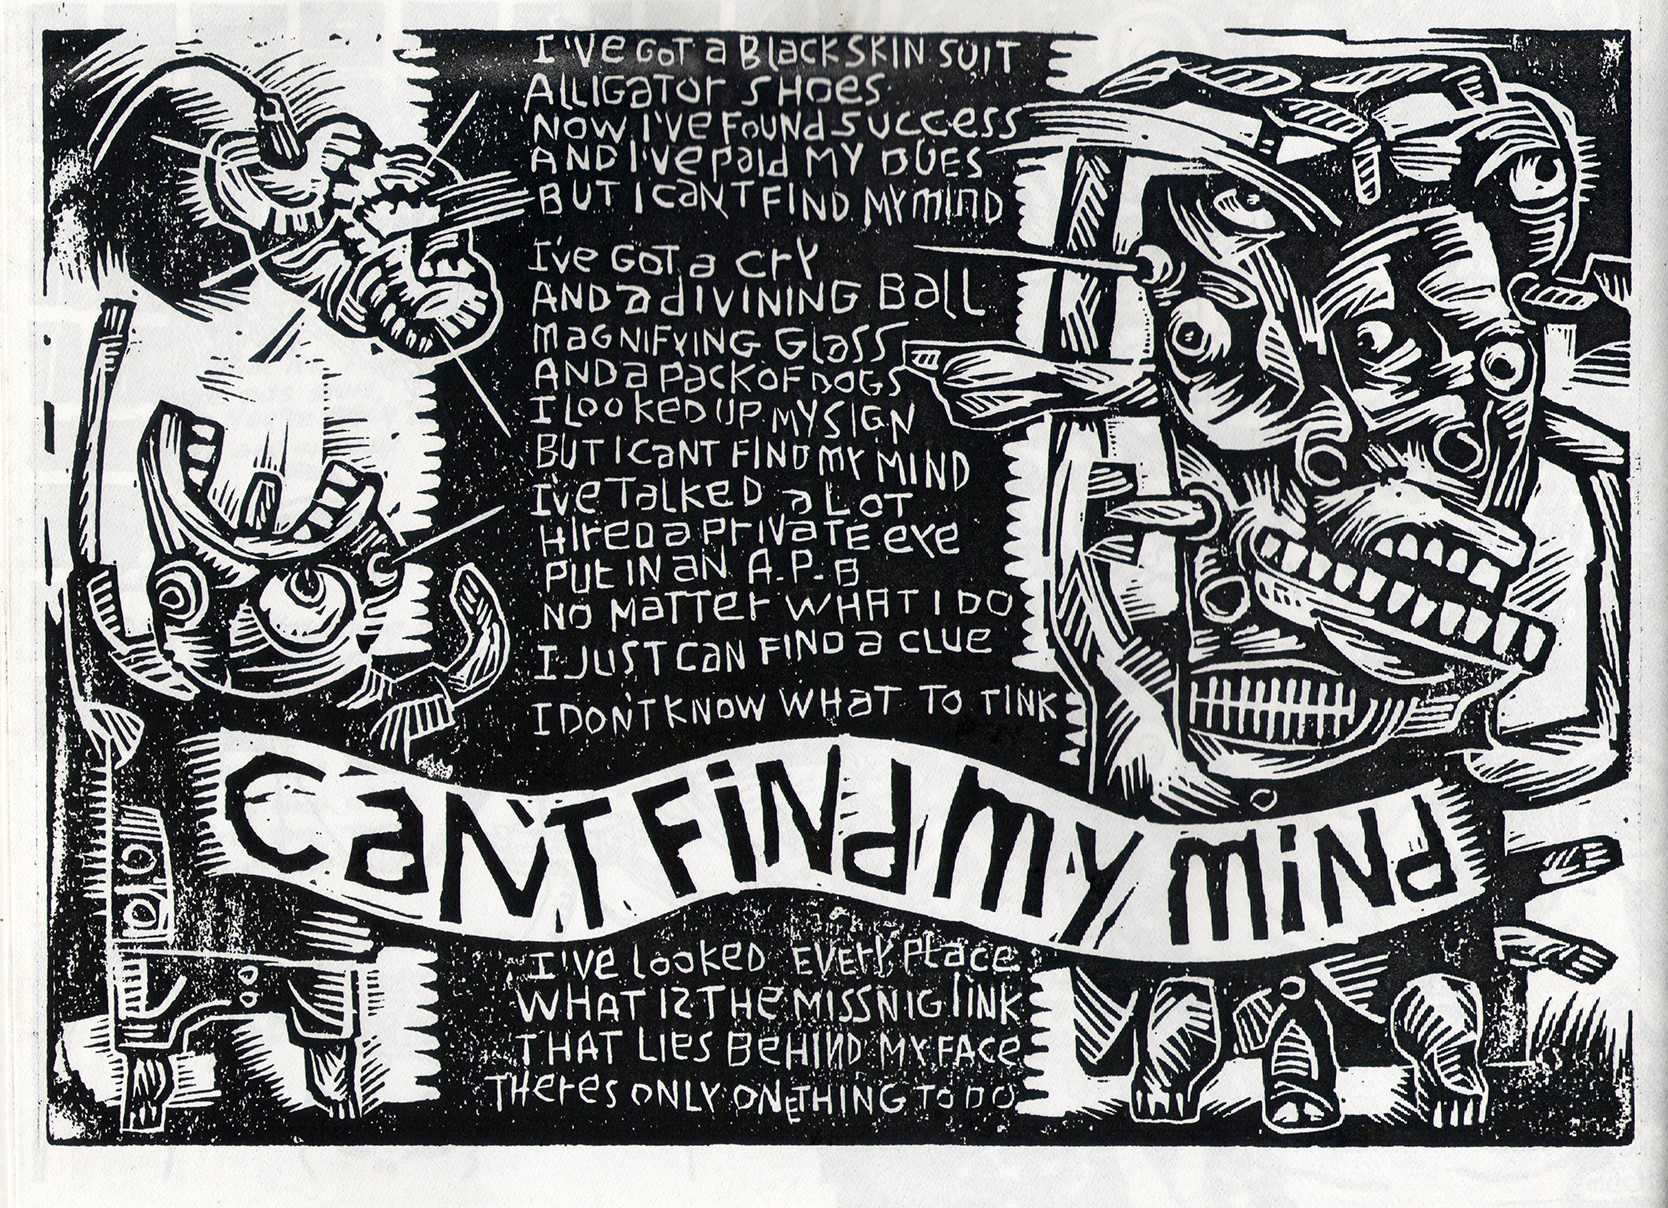 I'VE GOT a BLACK SKIN SUIT
ALLIGATOR SHOES
NOW I'VE FOUND SUCCESS
AND I'VE PAID MY DUES
BUT I CAN'T FIND MY MIND
I'VE GOT a CRY
AND a DIVINING BALL
MAGNIFYING GLASS
AND a PACK OF DOGS
I LOOKED UP MY SIGN
BUT I CANT FIND MY MIND
I'VE TALKED a LOT
HIRED a PRIVATE EYE
PUT IN AN A.P.B
NO MATTER WHAT I DO
I JUST CAN FIND a CLUE
I DON'T KNOW WHAT TO TINK
CAN'T FIND MY MIND
I'VE LOOKED EVERY PLACE
WHAT IS THE MISSNIG LINK
THAT LIES BEHIND MY FACE
THERES ONLY ONE THING TO DO